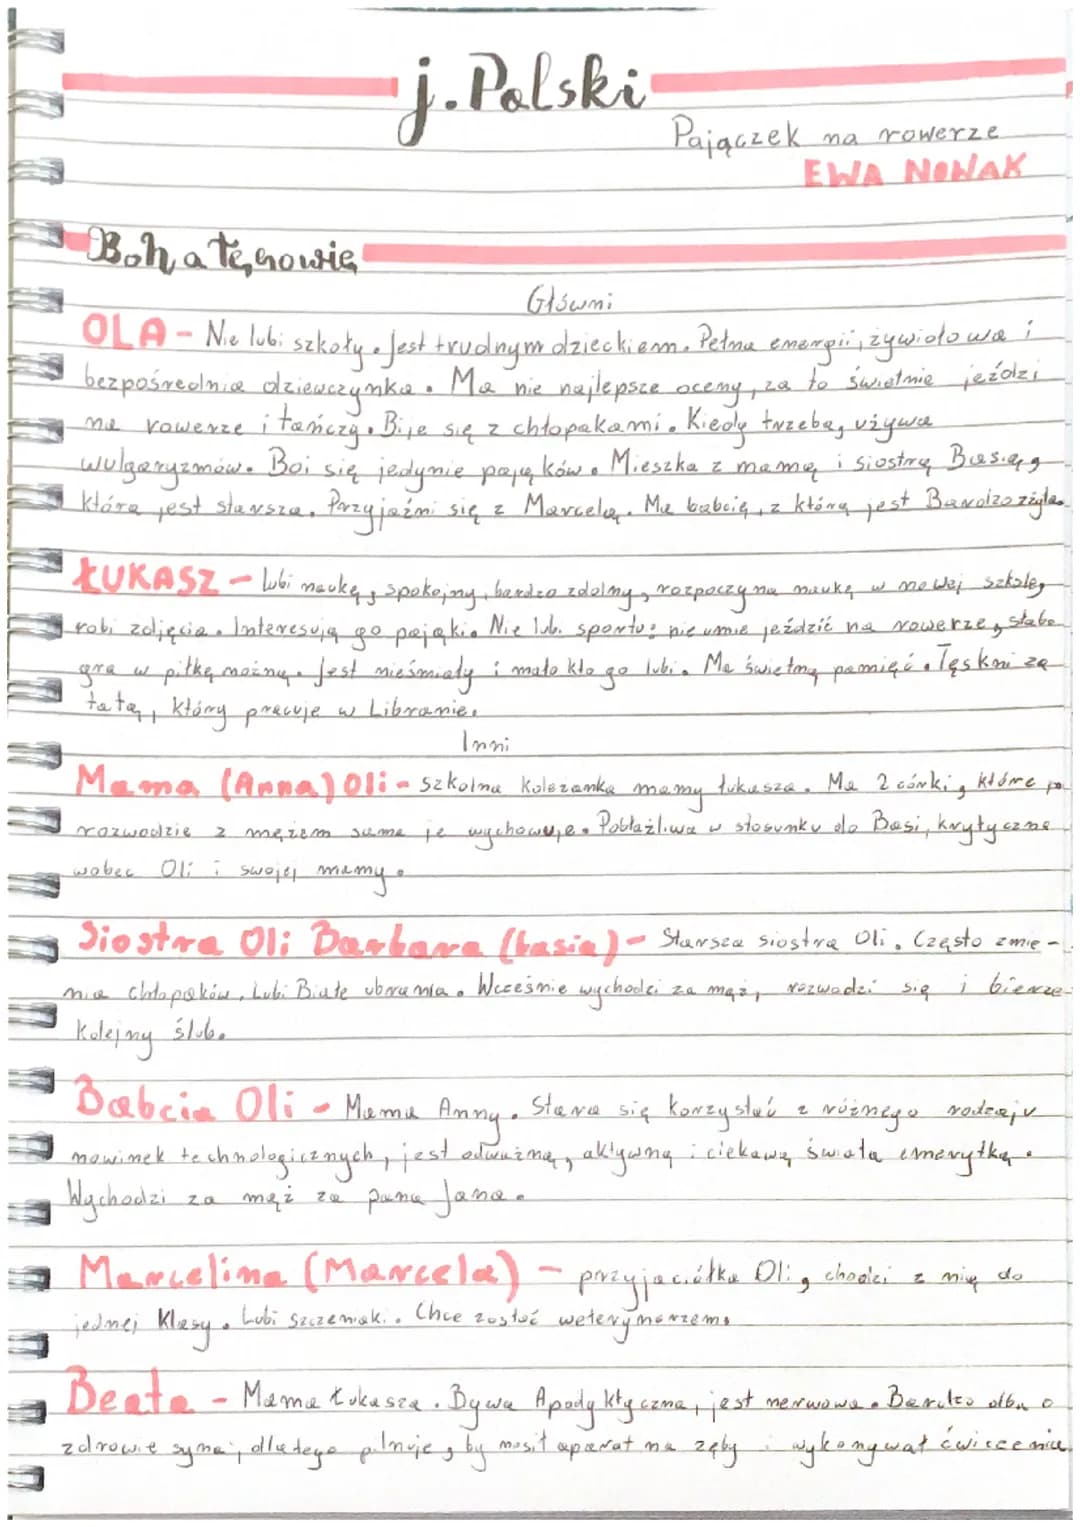 j. Polski
Pajączek na rowerze
EWA NOWAK
Bohaterowie
Główni
OLA - Nie lubi szkoły. Jest trudnym dzieckiem. Pełna energii, żywiołowa i
bezpośrednia dziewczynka. Ma nie najlepsze oceny, za to świetnie jeździ
na rowerze i tańczy. Bije się z chłopakami. Kiedy trzeba, używa
wulgaryzmów. Boi się jedynie pająków. Mieszka z mamą i siostrą Basią,
która jest starsza. Przyjaźni się z Marcelą. Ma babcię, z którą jest Bardzo zżyta.
ŁUKASZ - lubi naukę, spokojny, bardzo zdolny, rozpoczyna naukę w nowej szkole,
robi zdjęcia. Interesują go pająki. Nie lubi sportu: nie umie jeździć na rowerze, słabo
gra w piłkę nożną. Jest nieśmiały i mało kto go lubi. Ma świetną pamięć. Tęskni za
tatą, który pracuje w Libranie.
Inni
Mama (Anna) Oli - szkolna koleżanka mamy Łukasza. Ma 2 córki, które po
rozwodzie z mężem sama je wychowuje. Pobłażliwa w stosunku do Basi, krytyczna
wobec Oli i swojej mamy.
Siostra Oli Barbara (basia) - Starsza siostra Oli. Często zmie-
nia chłopaków. Lubi Białe ubrania. Wcześnie wychodzi za mąż, rozwodzi się i bierze
kolejny ślub.
Babcia Oli - Mama Anny. Stara się korzystać z różnego rodzaju
nowinek technologicznych, jest odważną, aktywną i ciekawą świata emerytką.
Wychodzi za mąż za pana Jana.
Marcelina (Marcela) - przyjaciółka Oli, chodzi z nią do
jednej klasy. Lubi szczeniaki. Chce zostać weterynarzem.
Beata - Mama Łukasza. Bywa Apodyktyczna, jest nerwowa. Bardzo dba o
zdrowie syna, dlatego pilnuje, by nosił aparat na zęby i wykonywał ćwiczenia